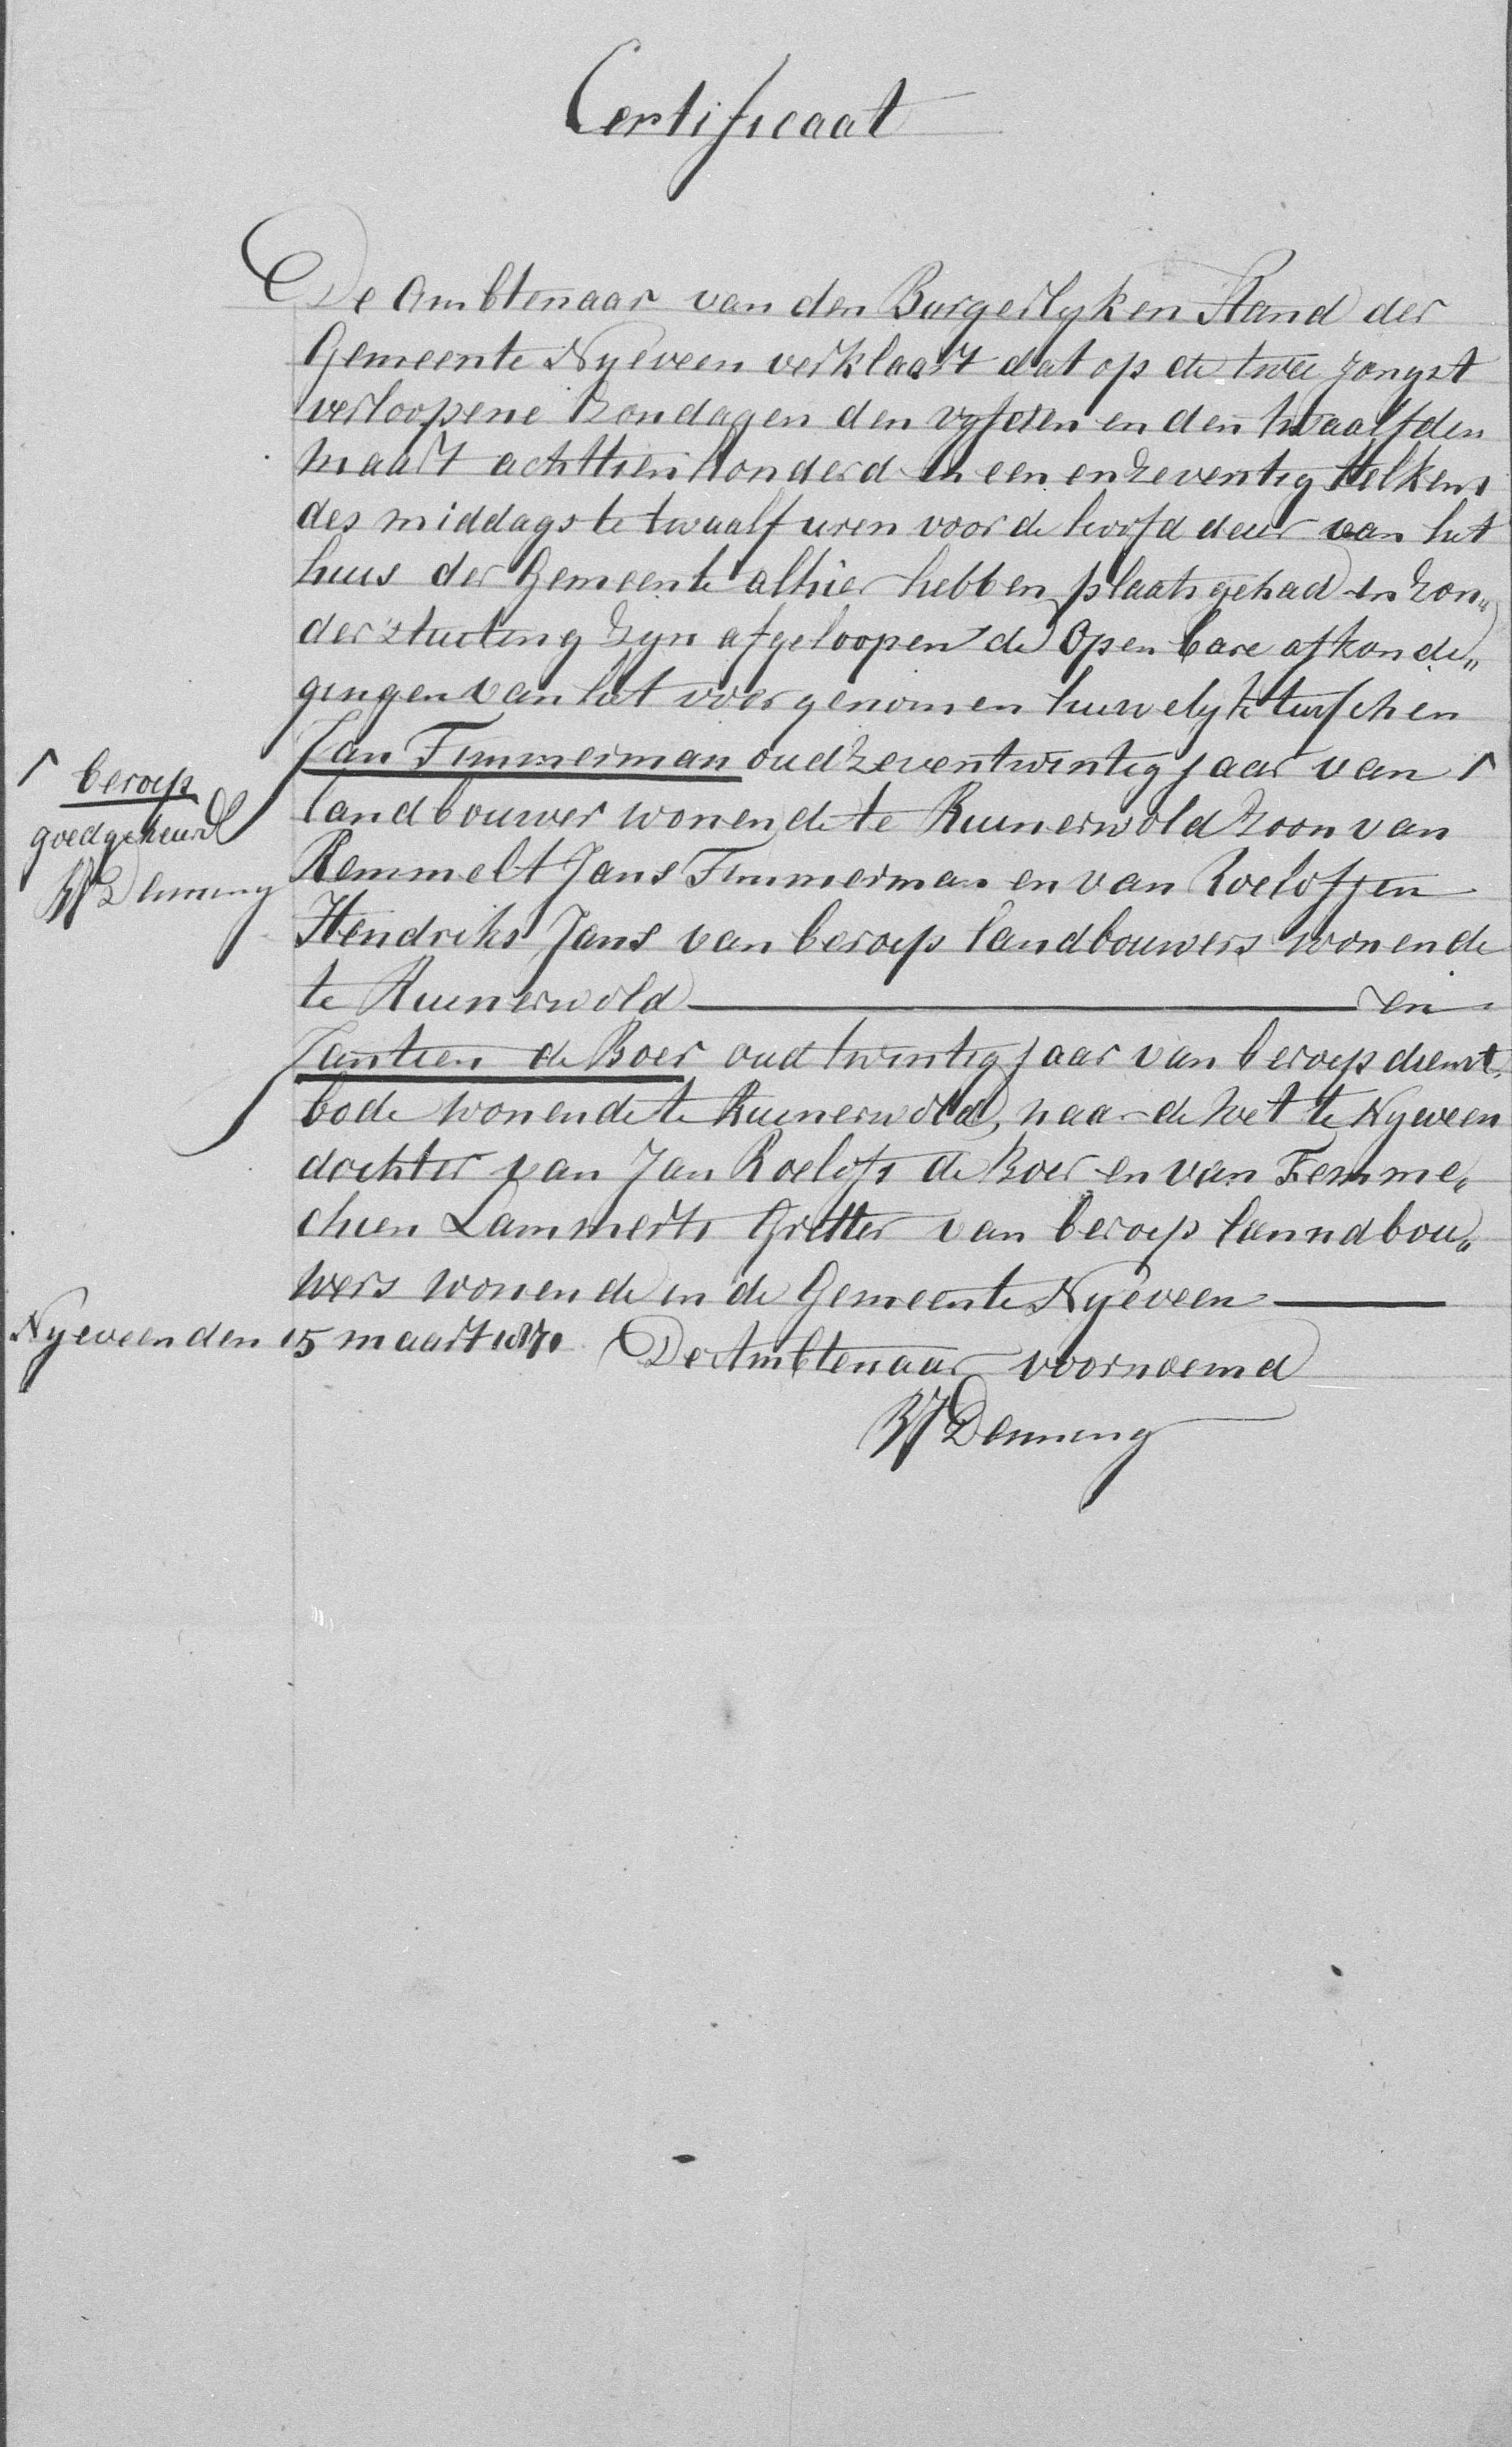 Certificaat
De Ambtenaar van den Burgerlyken Stand der
Gemeente Nyeveen verklaart dat op de twee jongst
verloopene Zondagen den vyfden en den twaalfden
Maart achttienhonderd en een en zeventig telkens
des middags te twaalf uren voor de hoofd deur van het
huis der Gemeente alhier hebben plaats gehad en zon„
der stuiting zyn afgeloopen de Openbare afkondi„
gingen van het voorgenomen huwelyk tusschen
Jan Timmerman oud zeventwintig jaar van ⌈
⌈ beroep
goedgekeurd
landbouwer wonende te Ruinerwold zoon van
Remmelt Jans Timmerman en van Roelofjen
Hendriks Jans van beroep landbouwers wonende
te Ruinerwold en
Jantien de Boer oud twintig jaar van beroep dienst„
bode wonende te Ruinerwold, naar de wet te Nyeveen
dochter van Jan Roelofs de Boer en van Femme„
chien Lammerts Gritter van beroep lanndbou„
wers wonende in de Gemeente Nyeveen
Nyeveen den 15 maart 1871 De Ambtenaar voornoemd